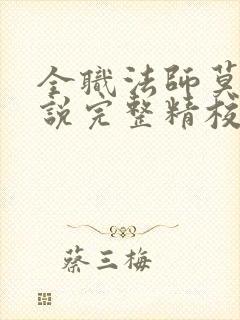 全職法師莫
說完整精校
蔡三梅